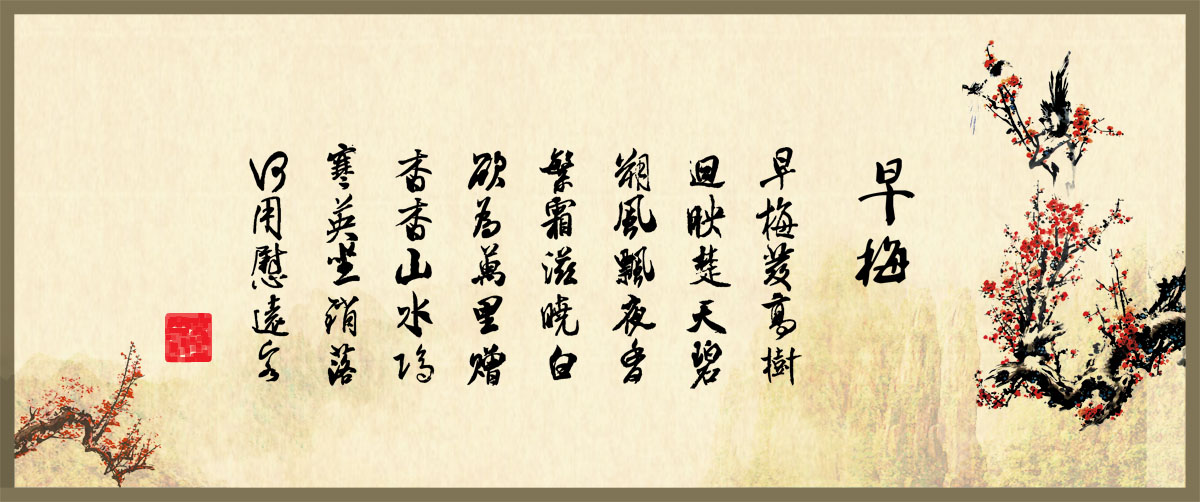 早梅
早梅發高樹
迴映楚天碧
朔風飄夜香
繁霜滋曉白
欲為萬里贈
香香山水隔
寒英坐銷落
何用慰遠客